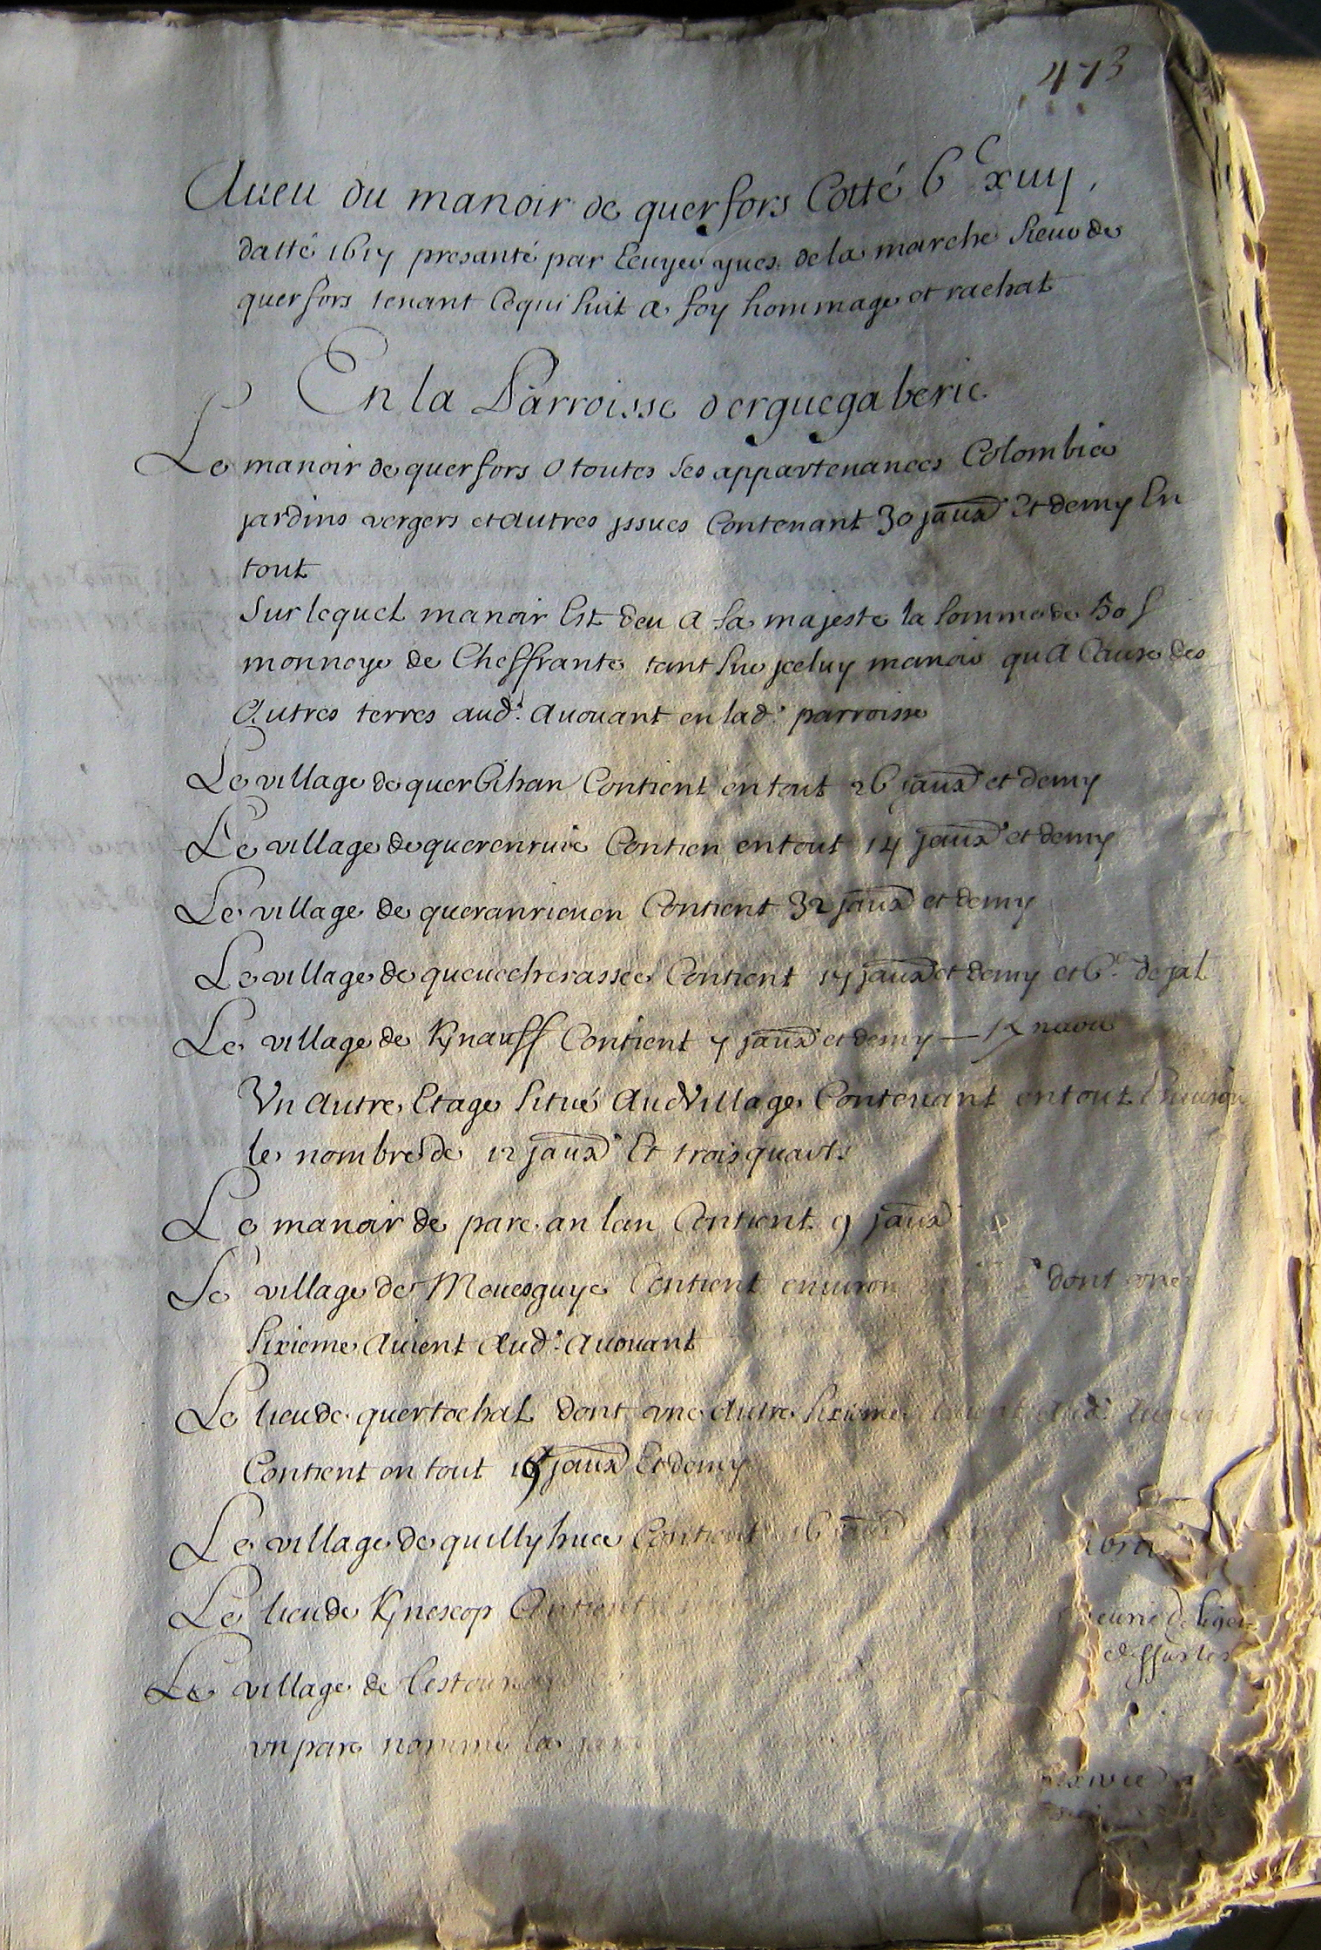 473
Aueu du manoir de querfors Cotté 6 C xiiij,
datté 1617 presanté par Ecuyer yues de la marche Sieur de
querfors tenant Ce qui Suit a foy hommage et rachat
En la Parroisse derguegaberic
Le manoir de querfors o toutes Ses appartenances Colombier
jardins vergers et autres jssues Contenant 30 jaux et demy En
tout
Sur lequel manoir Est deu a sa majeste la Somme de 50 s
monnoye de Cheffrante tant Sur jceluy manoir qu a Cause des
Autres terres aud. Auouant en lad. parroisse
Le village de querbihan Contient en tout 26 jaux et demy
Le village de querenruie Contien en tout 14 jaux et demy
Le village de queranrieuen Contient 32 jaux et demy
Le village de queuecherassec Contient 17 jaux et demy et 6e de jal
Le village de Kjnauff Contient 7 jaux et demy
Vn Autre Etage Situé Aud Village Contenant en tout Enuiron
le nombre de 12 jaux Et trois quarts
Le manoir de parc an lan Contient 9 jaux
Le village de Mouesguye Contient enuiron dont vne
Sixieme Auient Aud. Auouant
Le lieu de quertochal dont vne Autre Sixieme Auient Aud. Auouant
Contient en tout jaux Et demy
Le village de quillyhuec Contient 16 jaux
Le lieu de Kjnescop Contient
Le village de
vn parc nommé la